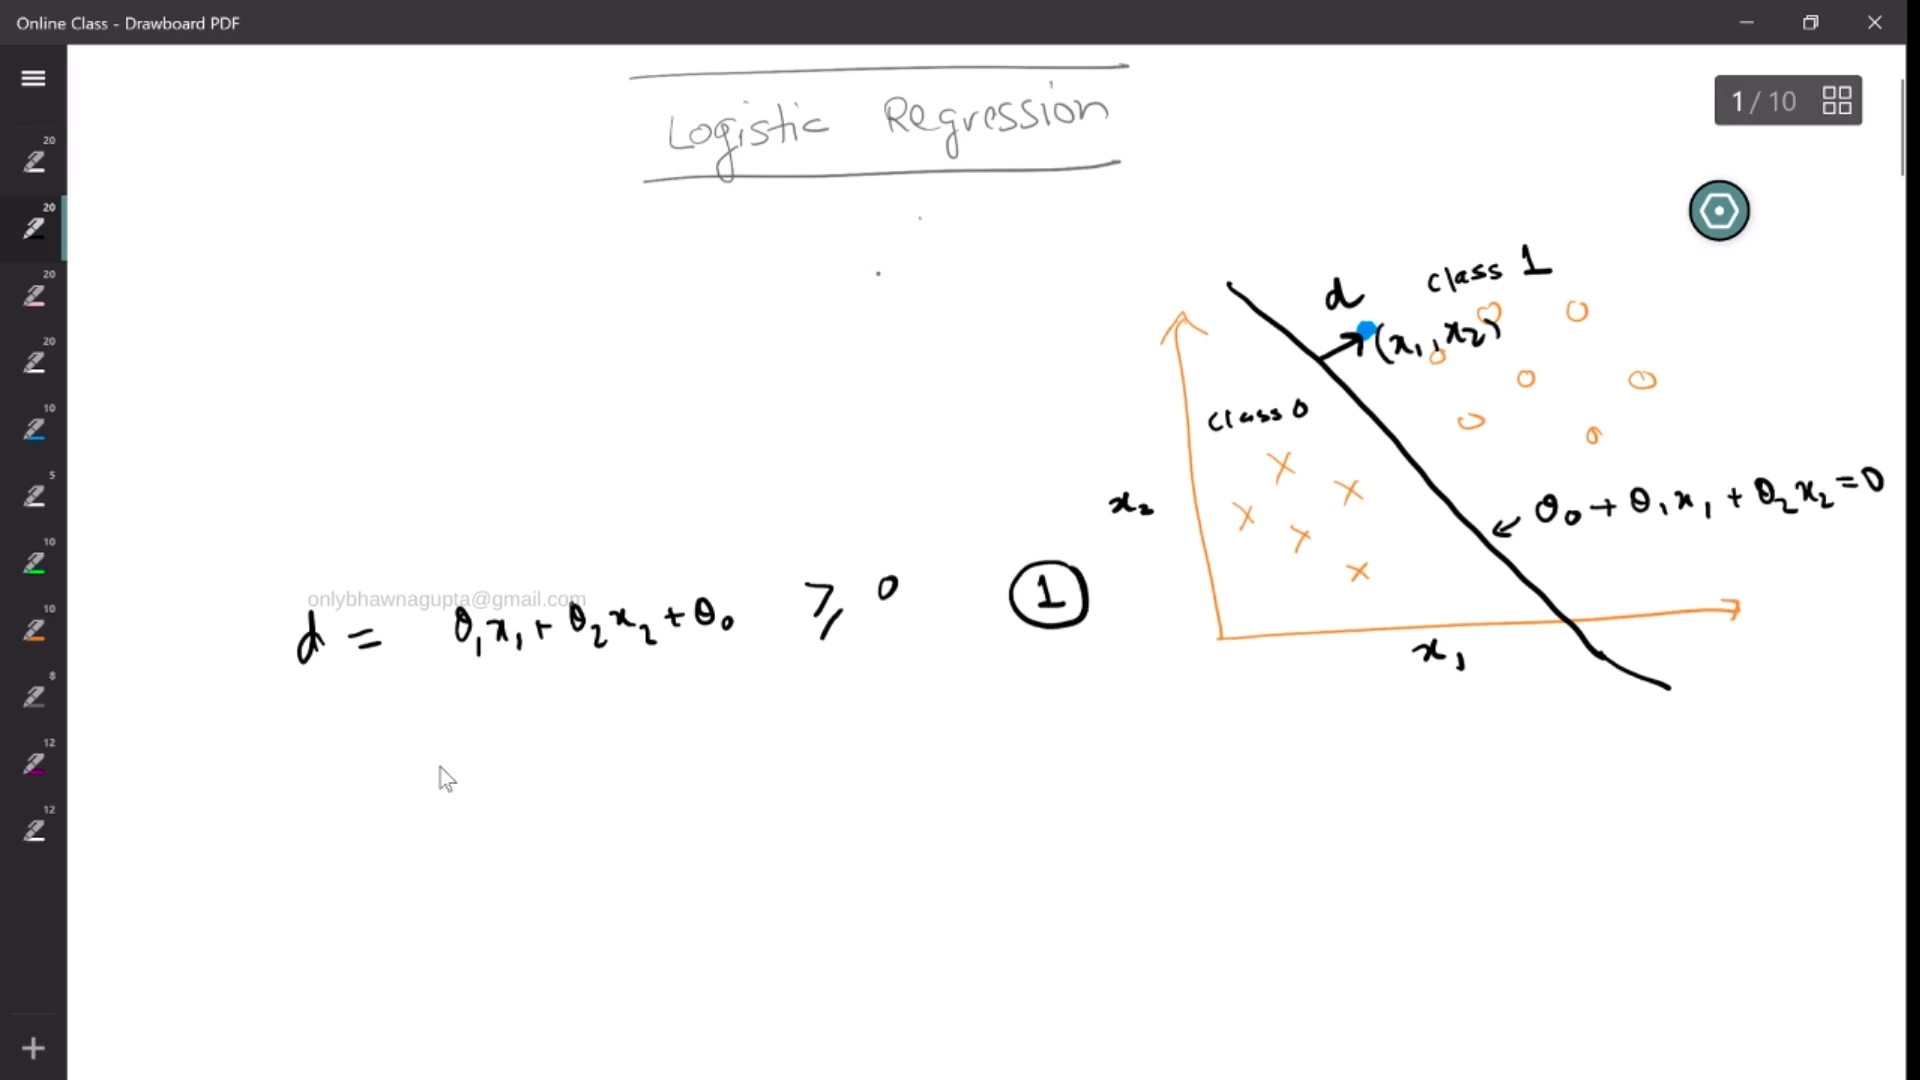 Online Class - Drawboard PDF
1 / 10
20
20
20
20
10
5
10
10
8
12
12
Logistic Regression
d
class 1
(x₁, x₂)
class 0
x₂
θ₀ + θ₁x₁ + θ₂x₂ = 0
x₁
onlybhawnagupta@gmail.com
d = θ₁x₁ + θ₂x₂ + θ₀ ⩾ 0 ①